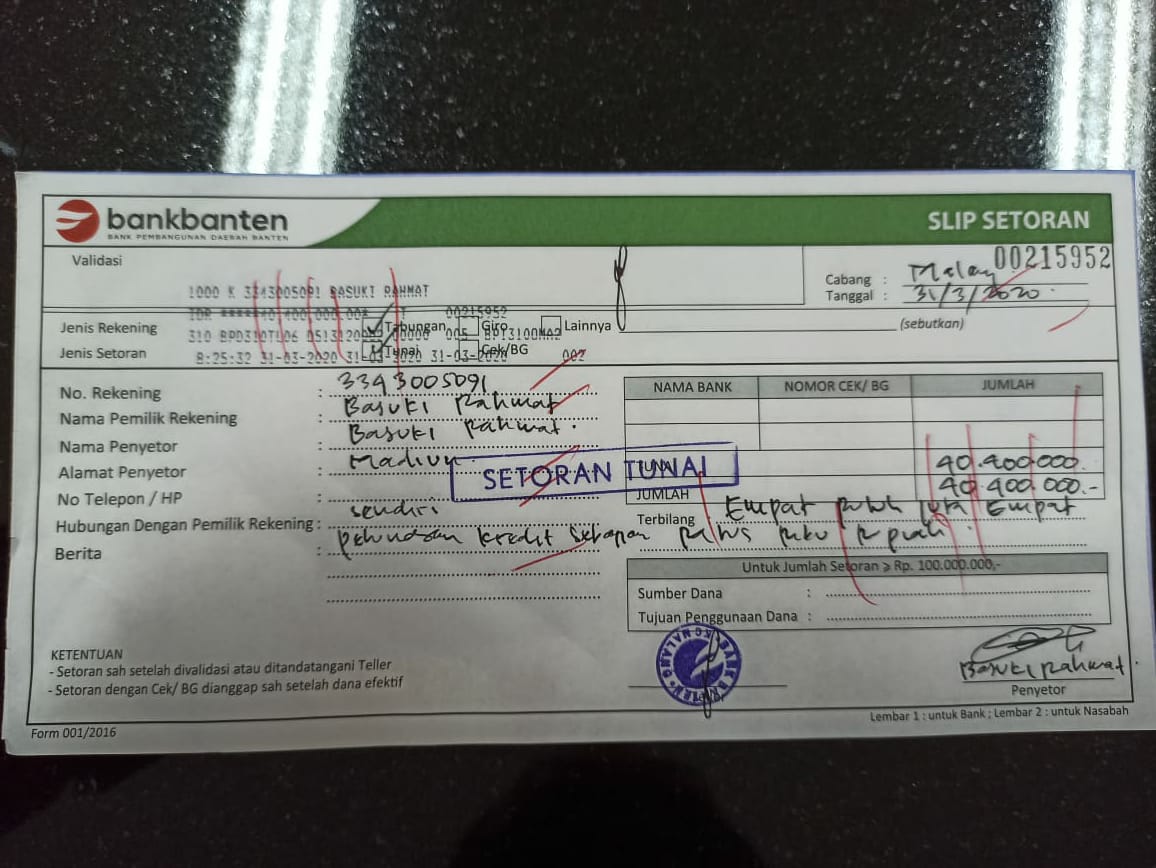 bankbanten
BANK PEMBANGUNAN DAERAH BANTEN
SLIP SETORAN
Validasi
00215952
Cabang : Malang
Tanggal : 31/3/2020.
1000 K 3343005091 BASUKI RAHMAT
IDR 40,400,000.00 00215952
Jenis Rekening Tabungan Giro Lainnya (sebutkan)
Jenis Setoran Tunai Cek/BG
8:25:32 31-03-2020 31-03-2020 31-03-2020 002
No. Rekening : 3343005091
Nama Pemilik Rekening : Basuki Rahmat
Nama Penyetor : Basuki Rahmat.
Alamat Penyetor : Madiun.
No Telepon / HP :
Hubungan Dengan Pemilik Rekening : sendiri
Berita : pelunasan kredit
SETORAN TUNAI
NAMA BANK NOMOR CEK/ BG JUMLAH
TUNAI 40.400.000
JUMLAH 40.400.000.-
Terbilang Empat puluh juta Empat
ratus ribu rupiah.
Untuk Jumlah Setoran ≥ Rp. 100.000.000,-
Sumber Dana :
Tujuan Penggunaan Dana :
KETENTUAN
- Setoran sah setelah divalidasi atau ditandatangani Teller
- Setoran dengan Cek/ BG dianggap sah setelah dana efektif
BANK BANTEN KC MALANG
Basuki Rahmat.
Penyetor
Lembar 1 : untuk Bank ; Lembar 2 : untuk Nasabah
Form 001/2016